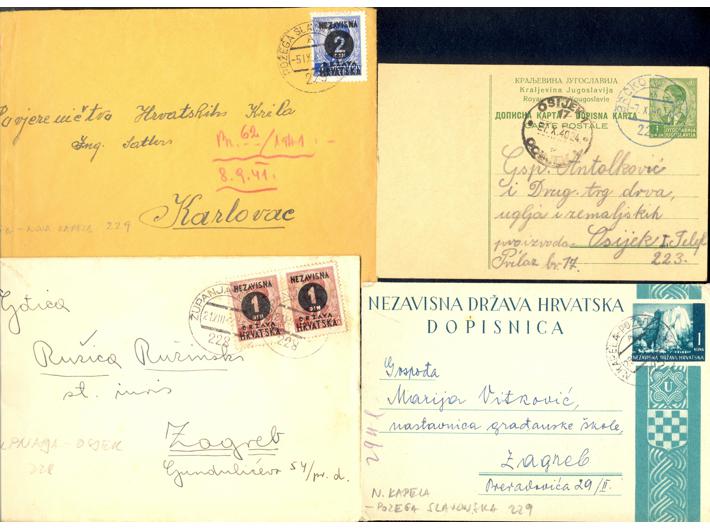 NEZAVISNA
2
DIN
DRŽAVA
HRVATSKA
POŽEGA SLAV
229
Povjereništvo Hrvatskih Krila
Ing. Sattler
8.9.41.
Karlovac
NOVA KAPELA 229
КРАЉЕВИНА ЈУГОСЛАВИЈА
Kraljevina Jugoslavija
ДОПИСНА КАРТА DOPISNA KARTA
CARTE POSTALE
OSIJEK
17
Gsp. Antolković
i Drug. trg drva,
uglja i zemaljskih
proizvoda Osijek I. Telef
Prilaz br. 17. 223.
ŽUPANJA
228
NEZAVISNA
1
DIN
DRŽAVA
HRVATSKA
NEZAVISNA
1
DIN
DRŽAVA
HRVATSKA
228
Ružica Ružinski
Zagreb
Gundulićeva 54/pr. d.
228
NEZAVISNA DRŽAVA HRVATSKA
DOPISNICA
1
KUNA
NEZAVISNA DRŽAVA HRVATSKA
U
Gospođa
Marija Vitković,
nastavnica građanske škole,
Zagreb
Preradovića 29/II.
N. KAPELA
- POŽEGA SLAVONSKA 229